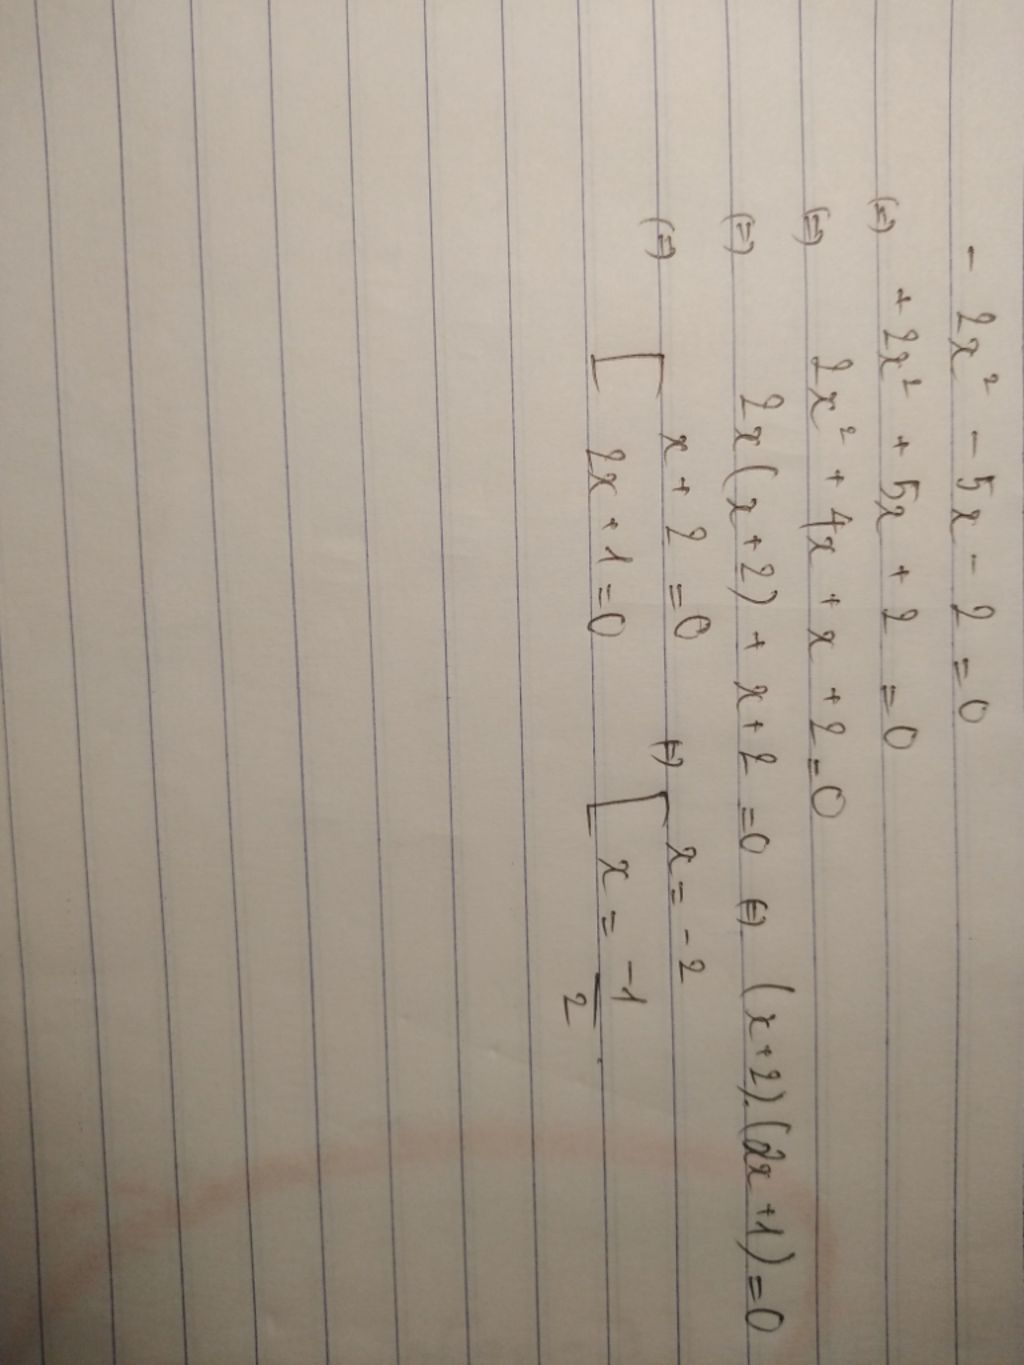 - 2x² - 5x - 2 = 0
(=) + 2x² + 5x + 2 = 0
(=) 2x² + 4x + x + 2 = 0
(=) 2x(x+2) + x+2 = 0 (=) (x+2).(2x+1)=0
(=) [ x + 2 = 0 (=) [ x = -2
2x + 1 = 0 x = -1/2